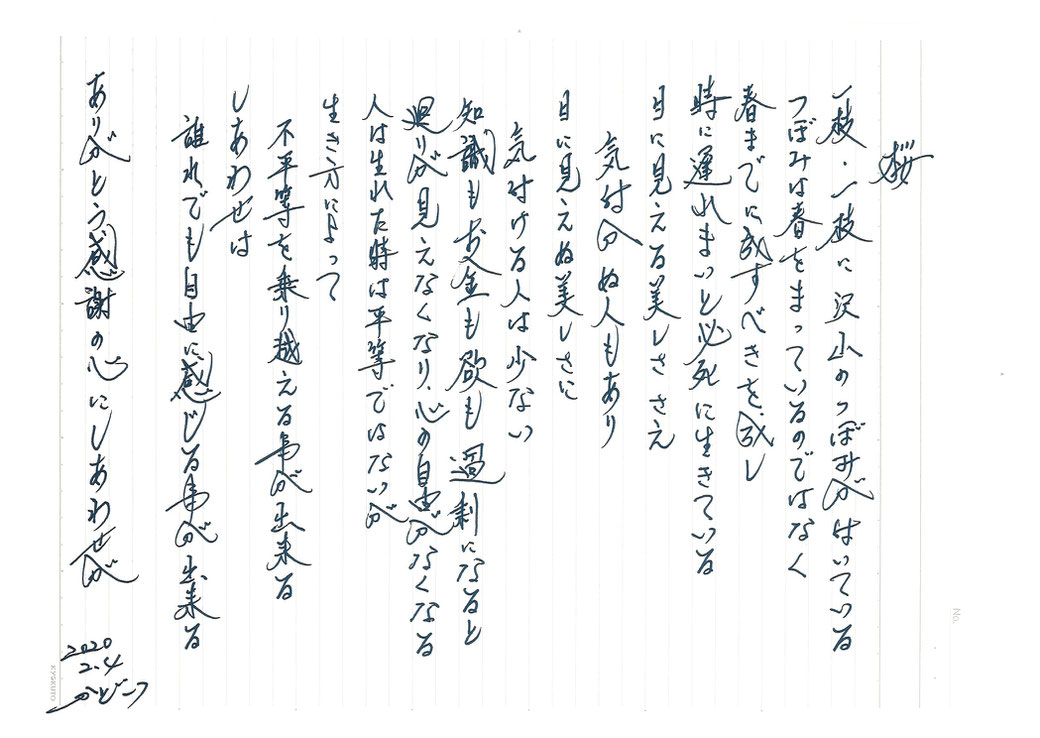 桜
一枝・一枝に沢山のつぼみがはいている
つぼみは春をまっているのではなく
春までに成すべきを成し
時に遅れまいと必死に生きている
目に見える美しささえ
気付かぬ人もあり
目に見えぬ美しさに
気付ける人は少ない
知識もお金も欲も過剰になると
周りが見えなくなり、心の自由がなくなる
人は生れた時は平等ではないが
生き方によって
不平等を乗り越える事が出来る
しあわせは
誰れでも自由に感じる事が出来る
ありがとう感謝の心にしあわせが
2020
2.4
No.
KYOKUTO